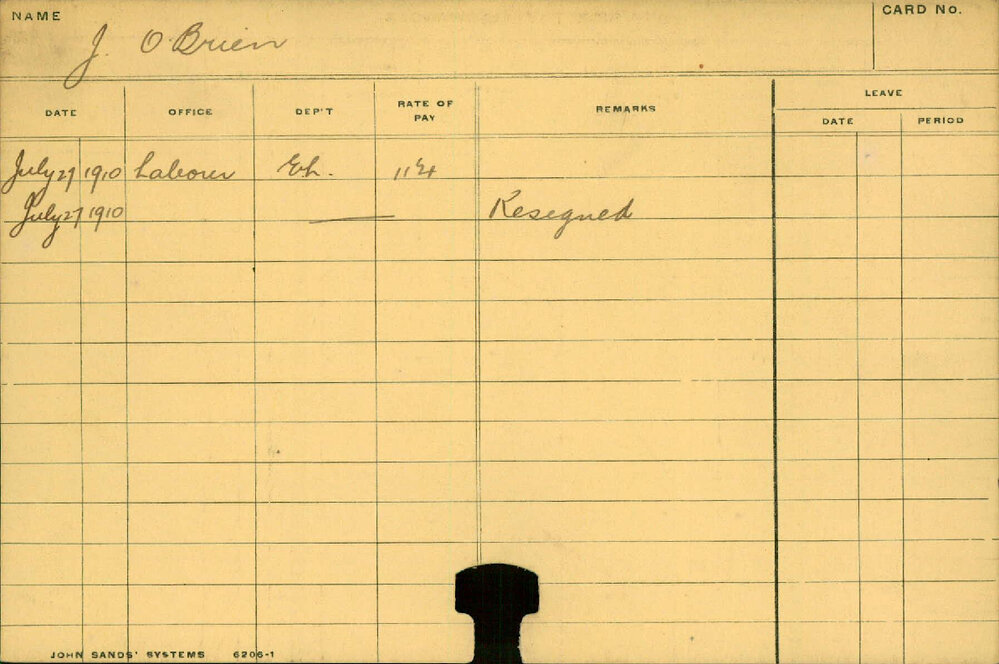 NAME J. O'Brien CARD No.
DATE OFFICE DEP'T RATE OF PAY REMARKS LEAVE
DATE PERIOD
July 27 1910 Labourer
July 27 1910 Resigned
JOHN SANDS' SYSTEMS 6206-1